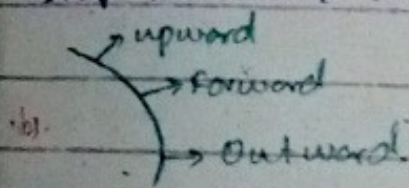 upward
forward
·b).
Outward.